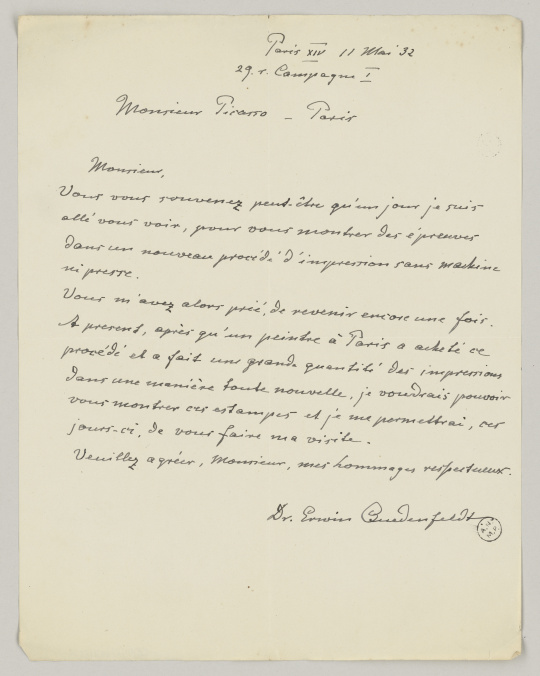 Paris XIV 11 Mai 32
29. r. Campagne I
Monsieur Picasso – Paris
Monsieur,
Vous vous souvenez peut-être qu'un jour je suis
allé vous voir, pour vous montrer des épreuves
dans un nouveau procédé d'impression sans machine
ni presse.
Vous m'avez alors prié, de revenir encore une fois.
A present, après qu'un peintre à Paris a acheté ce
procédé et a fait une grande quantité des impressions
dans une manière toute nouvelle, je voudrais pouvoir
vous montrer ces estampes et je me permettrai, ces
jours-ci, de vous faire ma visite.
Veuillez agréer, Monsieur, mes hommages respectueux.
Dr. Erwin Quedenfeldt